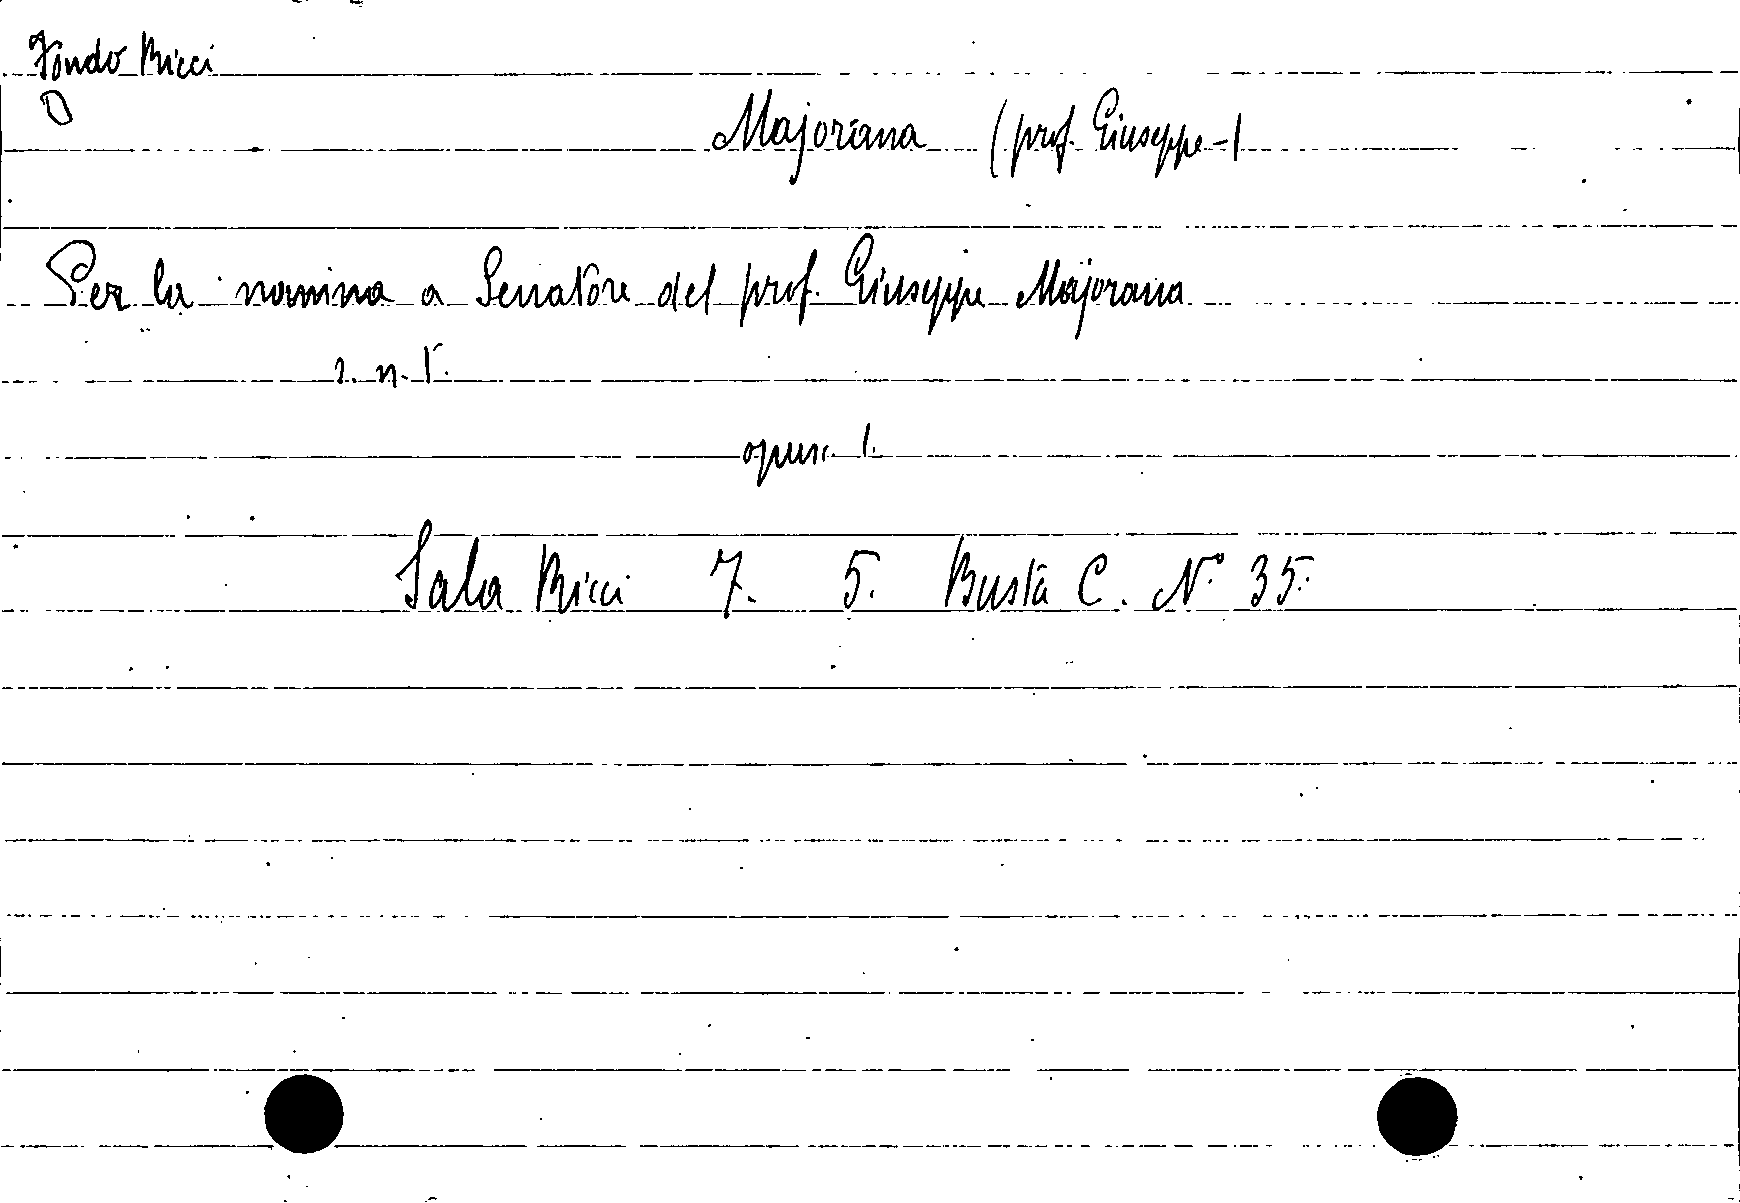 Fondo Ricci
O
Majorana (prof. Giuseppe-)
Per la nomina a Senatore del prof. Giuseppe Majorana
s. n. t.
opusc. 1.
Sala Ricci 7. 5. Busta C. N° 35.